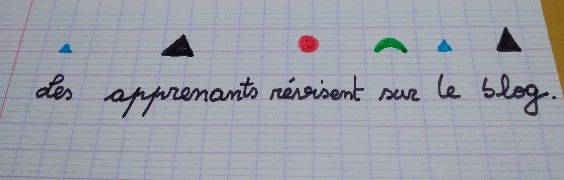 Les apprenants révisent sur le blog.